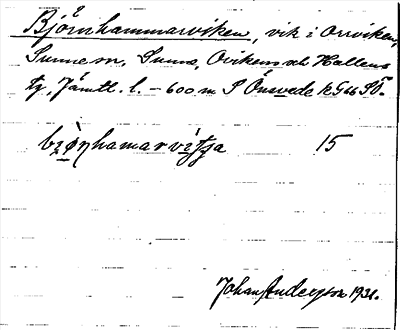 Björnhammarviken, vik i Orrviken,
Sunne sn, Sunne, Ovikens och Hallens
tg, Jämtl. l. – 600 m S Önsvede kG66 SÖ.
bi̯ö̀ṇhamarvítja 15
Johan Anderson 1931.